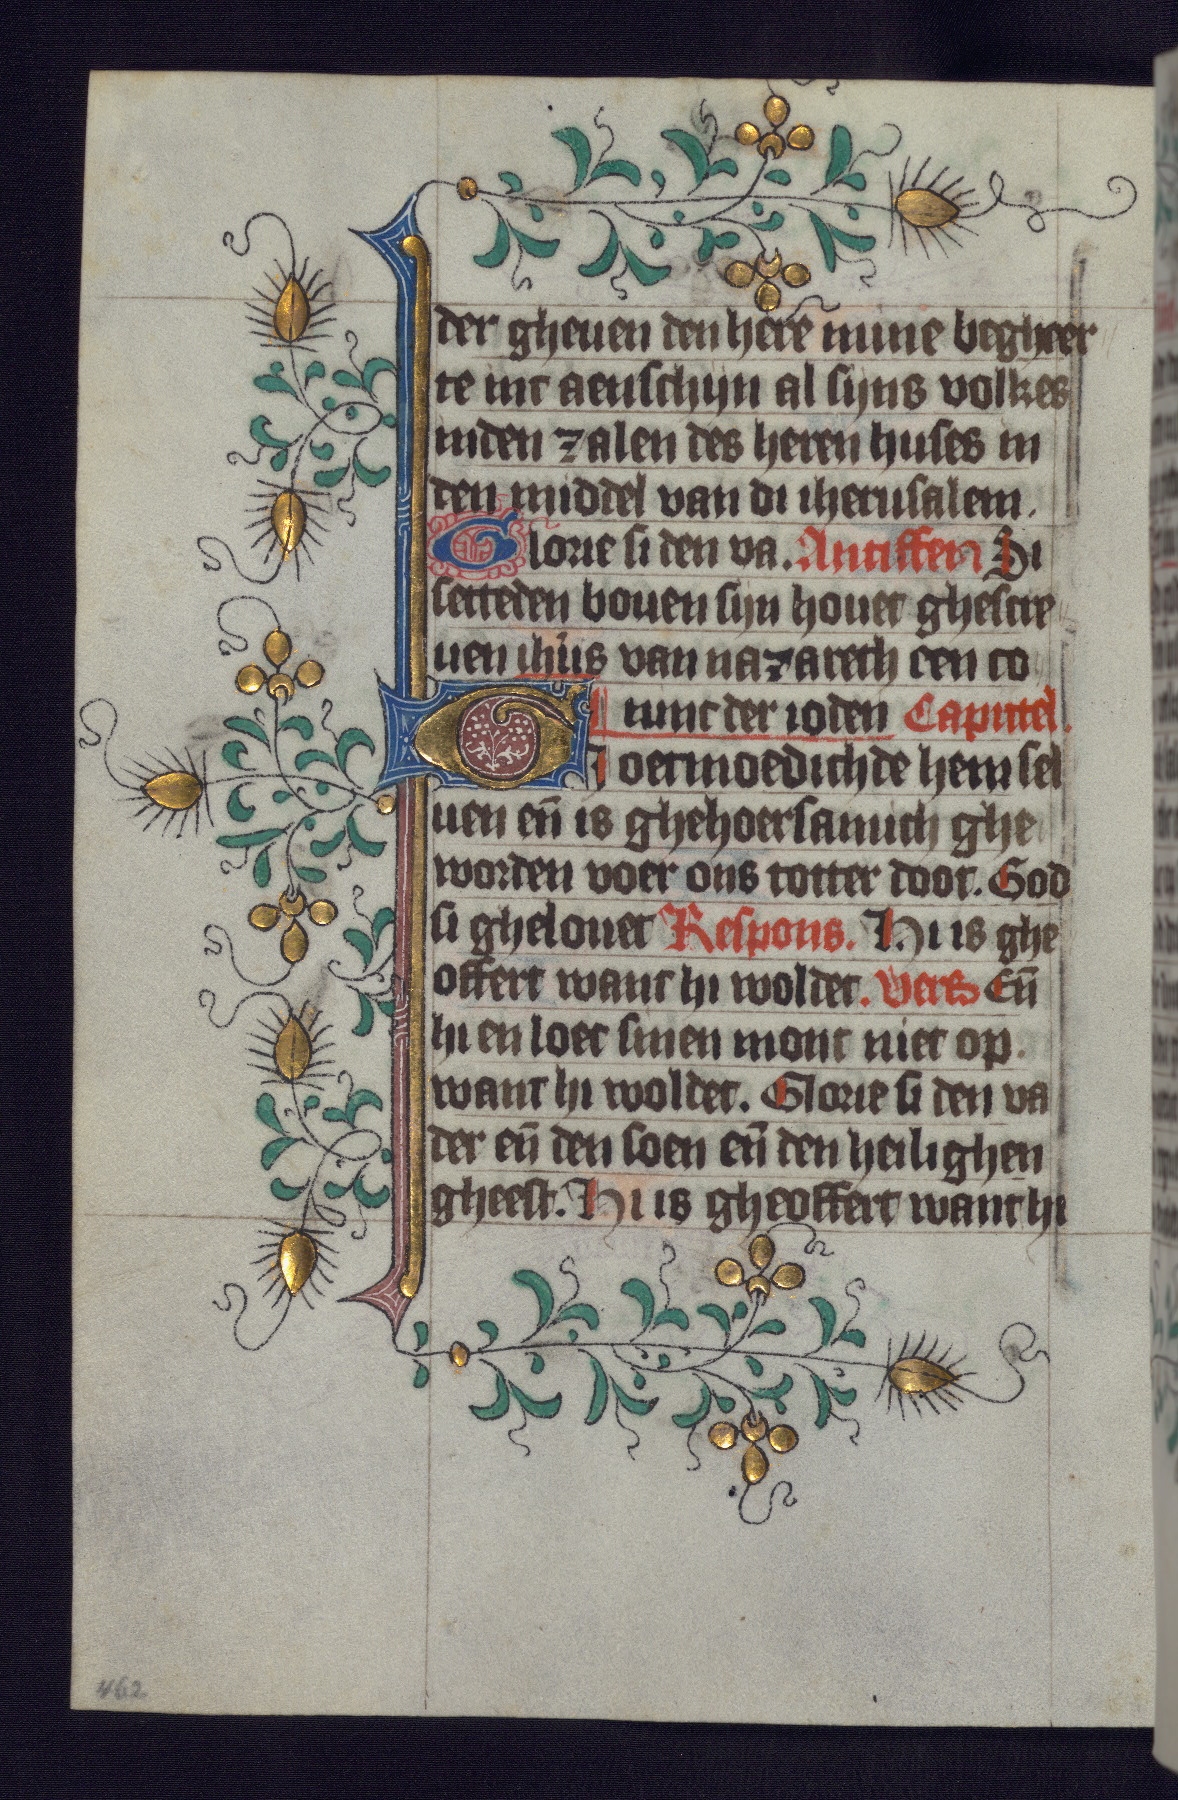 der gheuen den here mine begheer
te int aenschijn al sijns volkes
inden zalen des heren huses in
den middel van di iherusalem.
Glorie si den va. Antiffen Hi
setteden bouen sijn houet ghescre
uen ihūs van nazareth een co
ninc der ioden Capittel.
Oetmoedichde hem sel
uen eñ is ghehoersamich ghe
worden voer ons totter doot. God
si ghelouet Respons. Hi is ghe
offert want hi woldet. Vers Eñ
hi en loet sinen mont niet op.
want hi woldet. Glorie si den va
der eñ den soen eñ den heilighen
gheest. Hi is gheoffert want hi
462